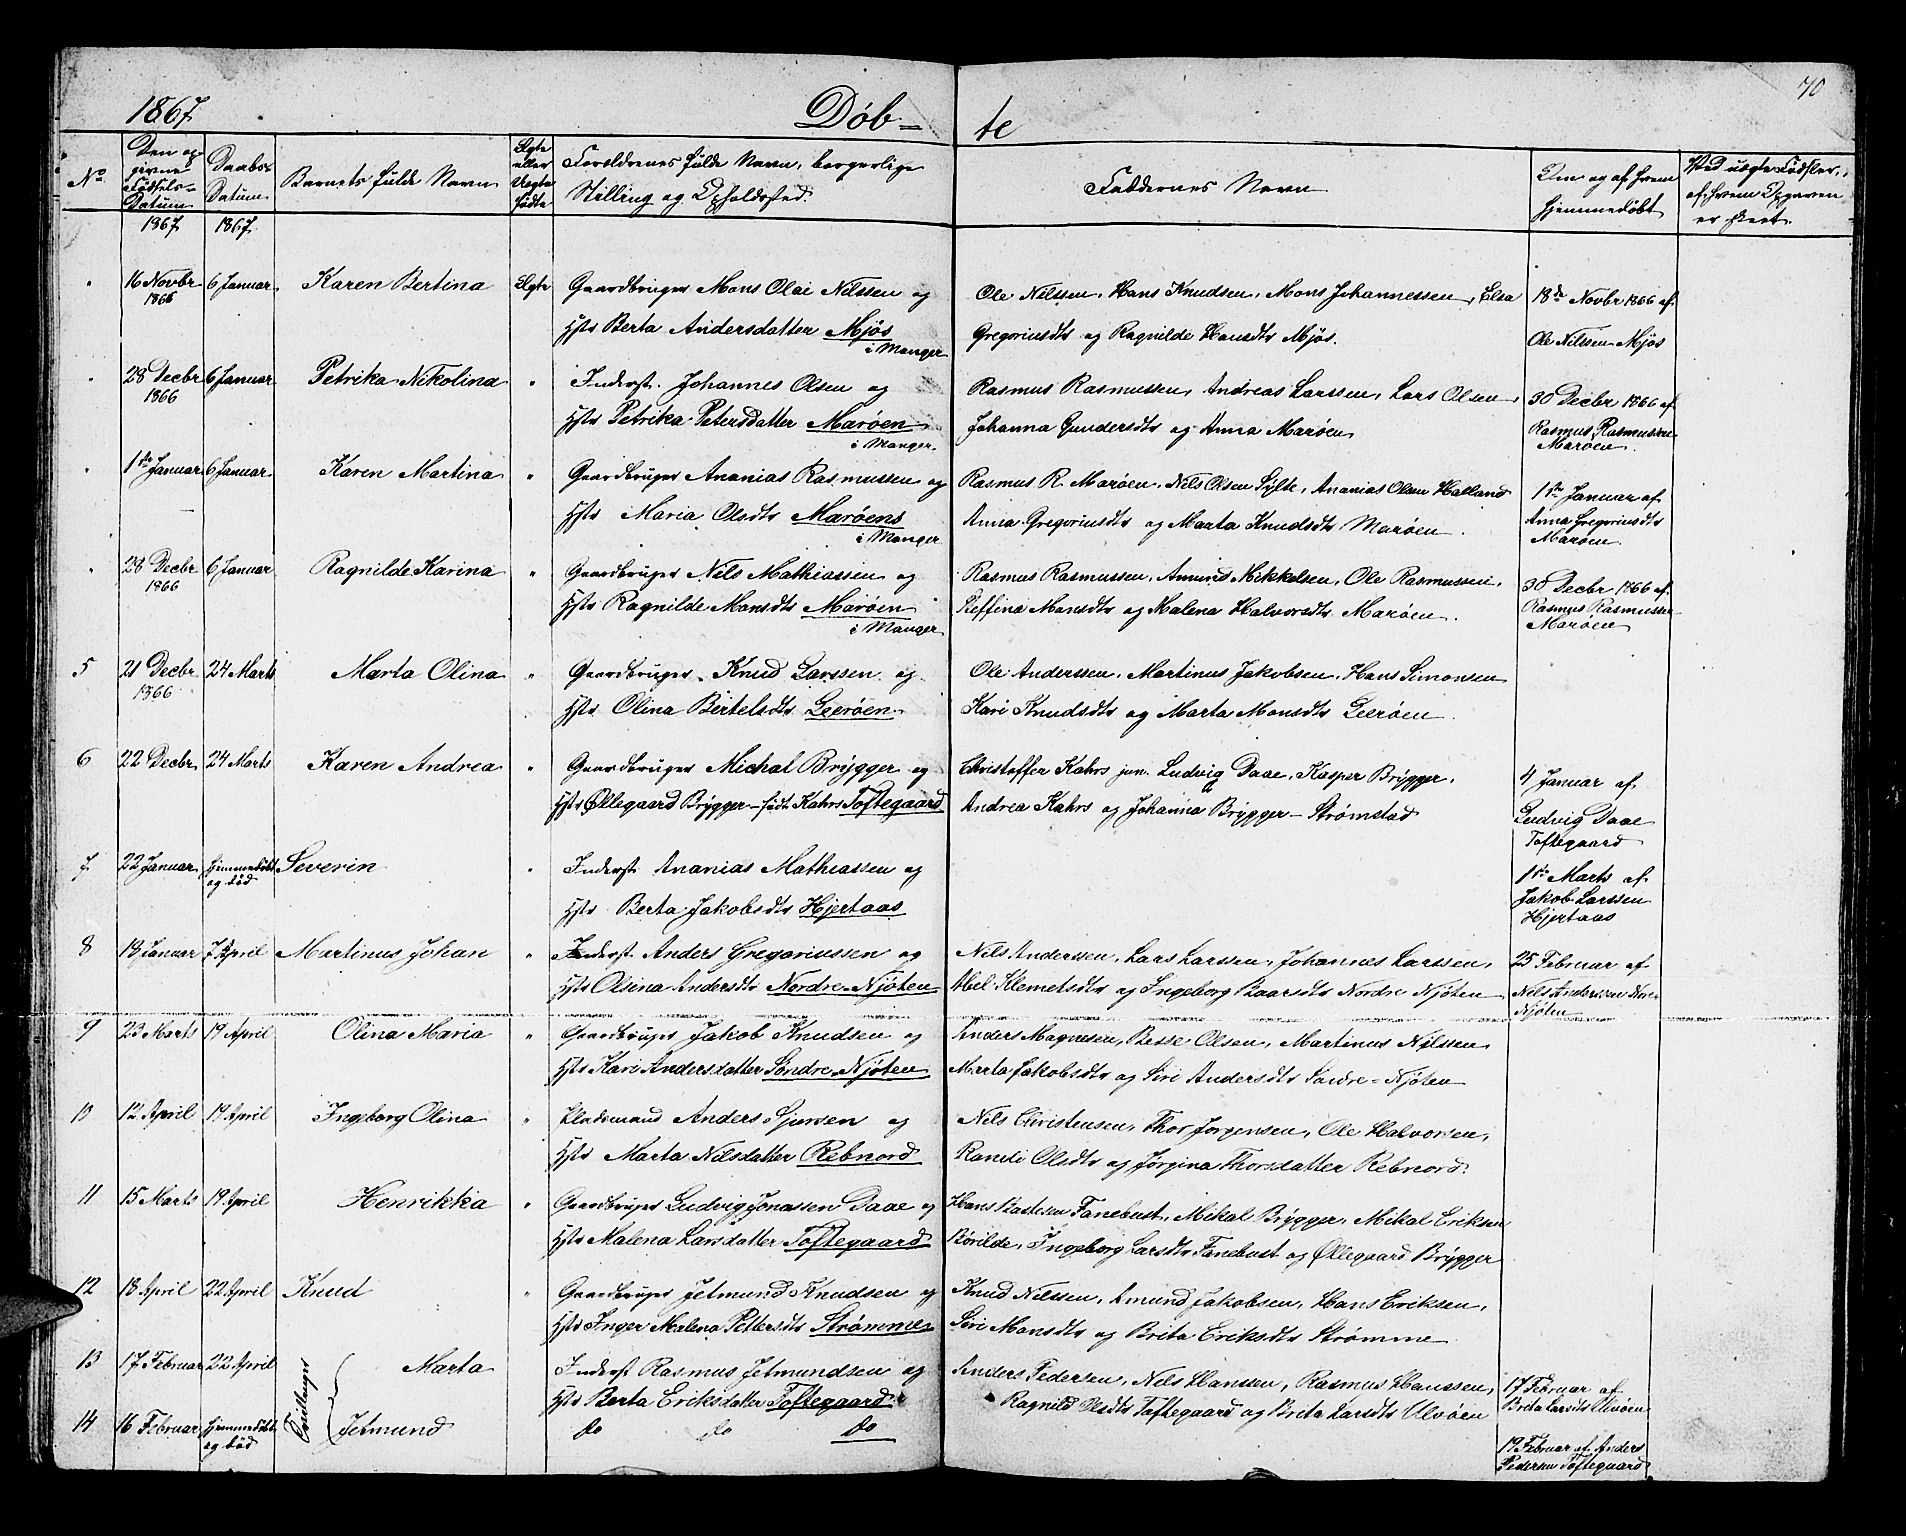 1867 Døb= te 70
No
Den op-
givne
Fødsels-
Datum
Daabs-
Datum
Barnets fulde Navn
Ægte
eller
Uægte
fødte
Forældrenes fulde Navn, borgerlige
Stilling og Opholdssted.
Faddernes Navn
Om og af hvem
hjemmedøbt
Ved uægte Fødsler,
af hvem Opgaven
er skeet.
1867 1867
" 16 Novbr 6 Januar Karen Bertina Ægte Gaardbruger Mons Olai Nilssen og Ole Nilssen, Hans Knudsen, Mons Johannessen, Elsa 18de Novbr 1866 af
1866 Hst Berta Andersdatter Mjøs Gregoriusdtr og Ragnilde Hansdtr Mjøs. Ole Nilssen Mjøs
i Manger
" 28 Decbr 6 Januar Petrika Nikolina " Inderst. Johannes Olsen og Rasmus Rasmussen, Andreas Larssen, Lars Olsen, 30 Decbr 1866 af
1866 Hst Petrika Petersdatter Marøen Johanna Gundersdtr og Anna Marøen Rasmus Rasmussen
i Manger. Marøen.
" 1ste Januar 6 Januar Karen Martina " Gaardbruger Ananias Rasmussen og Rasmus R. Marøen, Nils Olsen Sylte, Ananias Olsen Halland 1ste Januar af
Hst Maria Olsdtr Marøens Anna Gregoriusdtr og Marta Knudsdtr Marøen. Anna Gregoriusdtr
i Manger Marøen.
" 28 Decbr 6 Januar Ragnilde Karina " Gaardbruger Nils Mathiassen og Rasmus Rasmussen, Amund Mikkelsen, Ole Rasmussen, 30 Decbr 1866 af
1866 Hst Ragnilde Monsdtr Marøen Steffina Monsdtr og Malena Halvorsdtr Marøen. Rasmus Rasmussen
i Manger Marøen
5 21 Decbr 24 Marts Marta Olina " Gaardbruger Knud Larssen og Ole Anderssen, Martinus Jakobsen, Hans Simonsen
1866 Hst Olina Bertelsdtr Leerøen Kari Knudsdtr og Marta Monsdtr Leerøen.
6 22 Decbr 24 Marts Karen Andrea " Gaardbruger Michal Brygger og Christoffer Kahrs jun. Ludvig Daae, Kasper Brygger, 4 Januar af
Hst Øllegaard Brygger født Kahrs Toftegaard Andrea Kahrs og Johanna Brygger Strømstad Ludvig Daae
Toftegaard
7 22 Januar Hjemmedøbt Severin " Inderst. Ananias Mathiassen og 1ste Marts af
og død Hst Berta Jakobsdtr Hjertaas Jakob Larssen
Hjertaas
8 18 Januar 7 April Martinus Johan " Inderst. Anders Gregoriussen og Nils Anderssen, Lars Larssen, Johannes Larssen, 25 Februar af
Hst Olsina Andersdtr Nordre Njøten Abel Klemetsdtr og Ingeborg Baarsdtr Nordre Njøten Nils Anderssen Nore
Njøten
9 23 Marts 19 April Olina Maria " Gaardbruger Jakob Knudsen og Anders Magnesen, Besse Olsen, Martinus Nilssen
Hst Kari Andersdatter Søndre Njøten Marta Jakobsdtr og Siri Andersdtr Søndre=Njøten
10 12 April 19 April Ingeborg Olina " Pladsmand Anders Sjursen og Nils Christensen, Thor Jørgensen, Ole Halvorsen,
Hst Marta Nilsdatter Rebnord Randi Olsdtr og Jørgina Thorsdatter Rebnord.
11 15 Marts 19 April Henrikka " Gaardbruger Ludvig Jonassen Daae og Hans Fanebust, Mikal Brygger, Mikal Eriksen
Hst Malena Larsdatter Toftegaard Ingeborg Larsdtr Fanebust og Øllegaard Brygger
12 18 April 22 April Knud " Gaardbruger Jetmund Knudsen og Knud Nilssen, Amund Jakobsen, Hans Eriksen,
Hst Inger Malena Pettersdtr Strømme Siri Monsdtr og Brita Eriksdtr Strømme
13 17 Februar 22 April Tvillinger Marta Inderst Rasmus Jetmundsen og Anders Pedersen, Nils Hanssen, Rasmus Hanssen, 17 Februar af
Hst Berta Eriksdatter Toftegaard Ragnild Olsdtr Toftegaard og Brita Larsdtr Ulvøen Brita Larsdtr Ulvøen
14 16 Februar Hjemmedøbt Jetmund do do do
og død 19 Februar af Anders
Pedersen Toftegaard